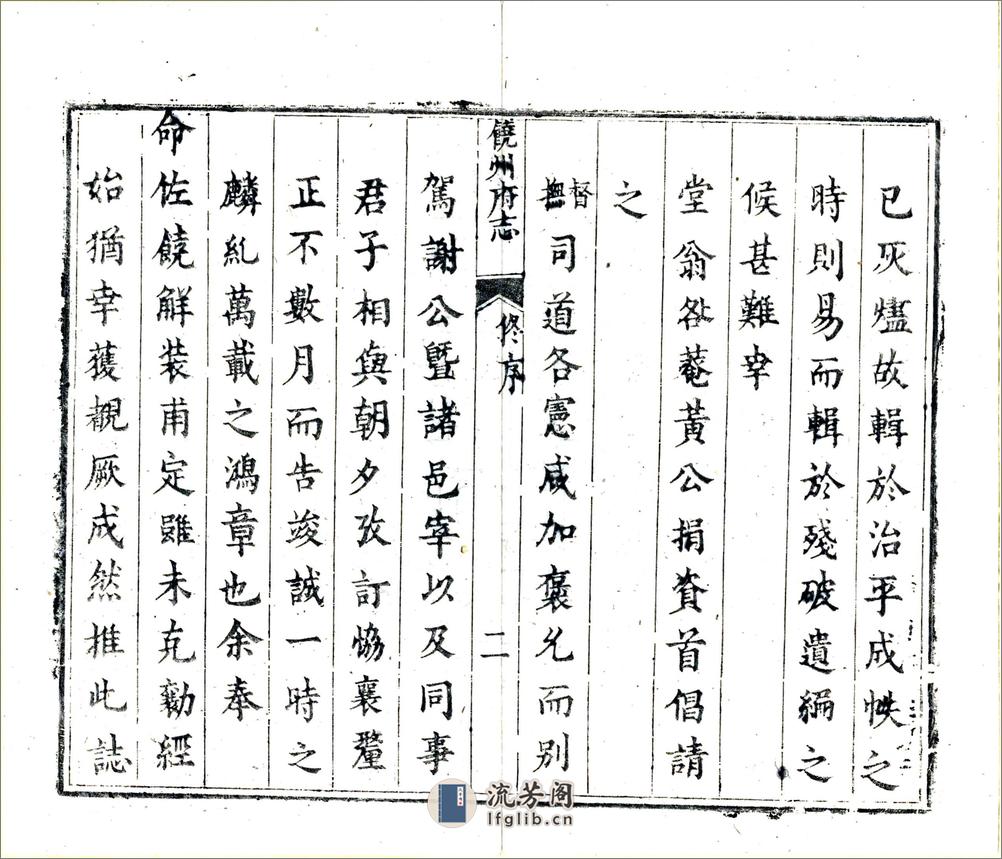 已灰燼故輯於治平成帙之
時則易而輯於殘破遺編之
候甚難幸
堂翁啓菴黃公捐資首倡請
之
督撫司道各憲咸加褒允而別
駕謝公暨諸邑宰以及同事
君子相與朝夕攷訂協襄釐
正不數月而告竣誠一時之
麟亂萬載之鴻章也余奉
命佐饒解裝甫定雖未克勷經
始猶幸獲觀厥成然推此誌
饒州府志
修序
二
流芳阁
lfglib.cn